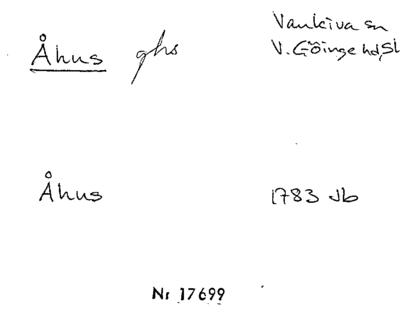 Åhus ghs
Vankiva sn
V. Göinge hd, Sk
Åhus
1783 Jb
Nr 17699